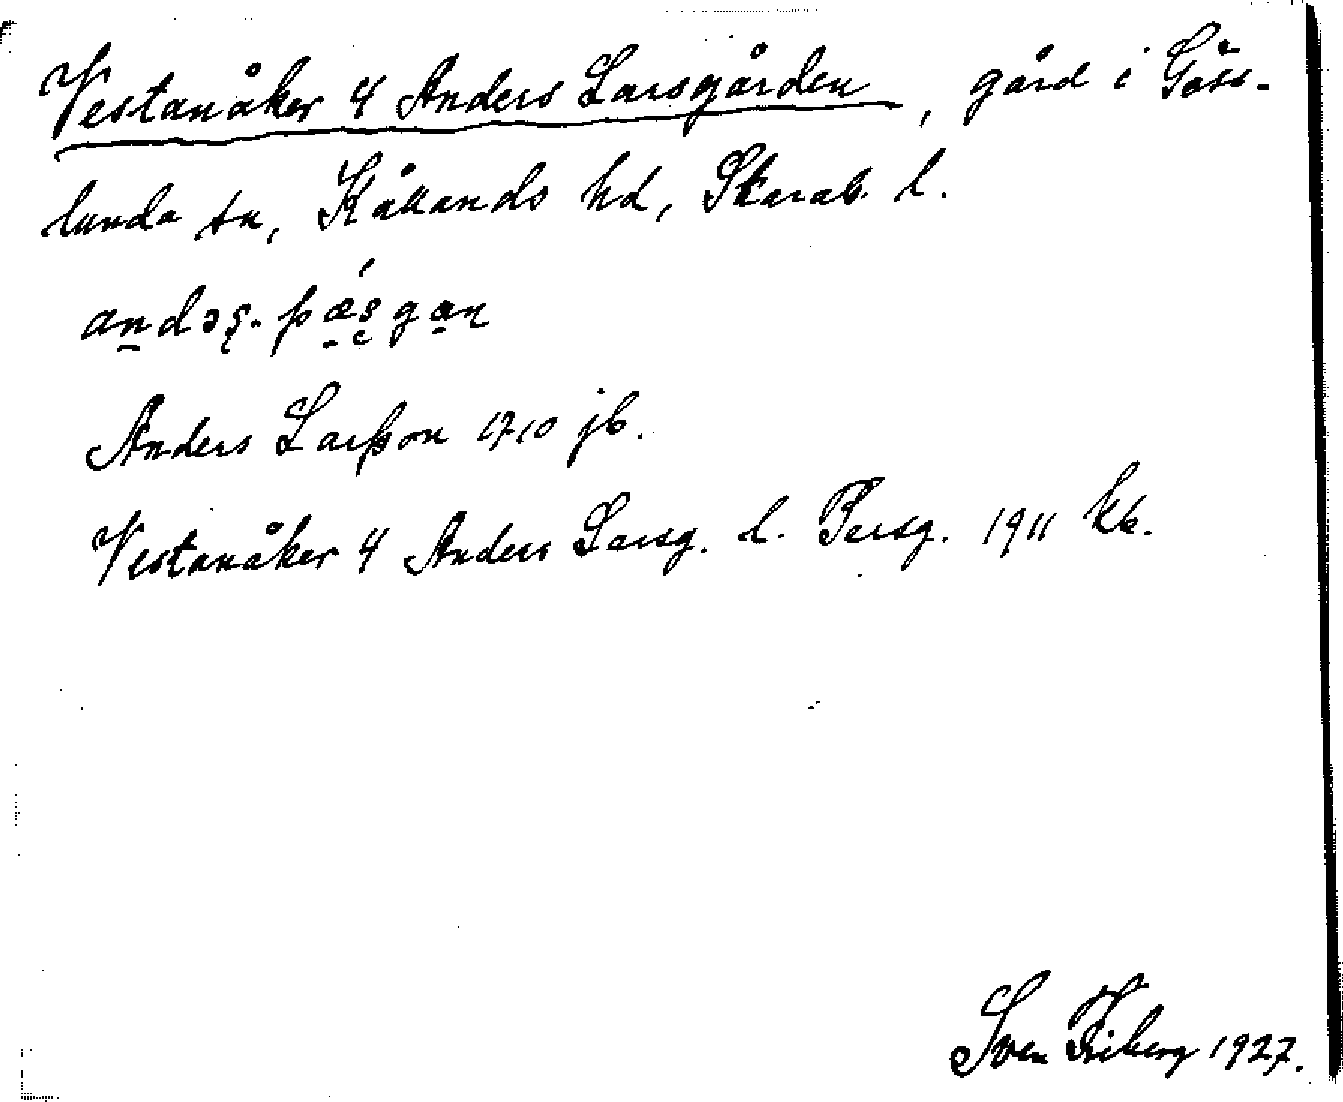 Vestanåker 4 Anders Larsgården, gård i Göss-
lunda sn, Kållands hd, Skarab. l.
andəş. pǽşgan
Anders Larsson 1710 jb.
Vestanåker 4 Anders Larsg. l. Persg. 1911 kb.
Sven Friberg 1927.